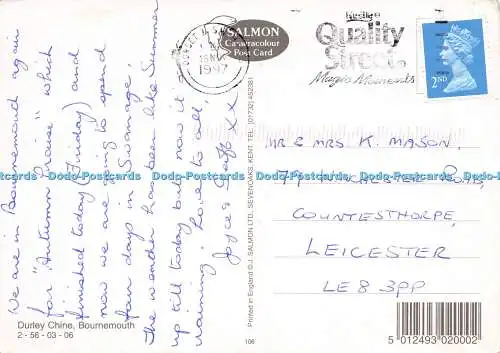 We are in Bournemouth again
for "Autumn Praise" which
finished today (Friday) and
now we are going to spend
four days in Swanage.
The weather has been like Summer
up till today but now it
raining. Love to all,
Joyce & Geoff XX
Durley Chine, Bournemouth
2 - 56 - 03 - 06
SALMON
Cameracolour
Post Card
1997
Nestlé
Quality
Street
Magic Moments
2ND
Printed in England © J. SALMON LTD., SEVENOAKS, KENT. TEL. (01732) 452381
106
MR & MRS K. MASON,
ROAD,
COUNTESTHORPE,
LEICESTER
LE8 3PP
5 012493 020002
Dodo-Postcards Dodo-Postcards Dodo-Postcards Dodo-Postcards Dodo-Postcards